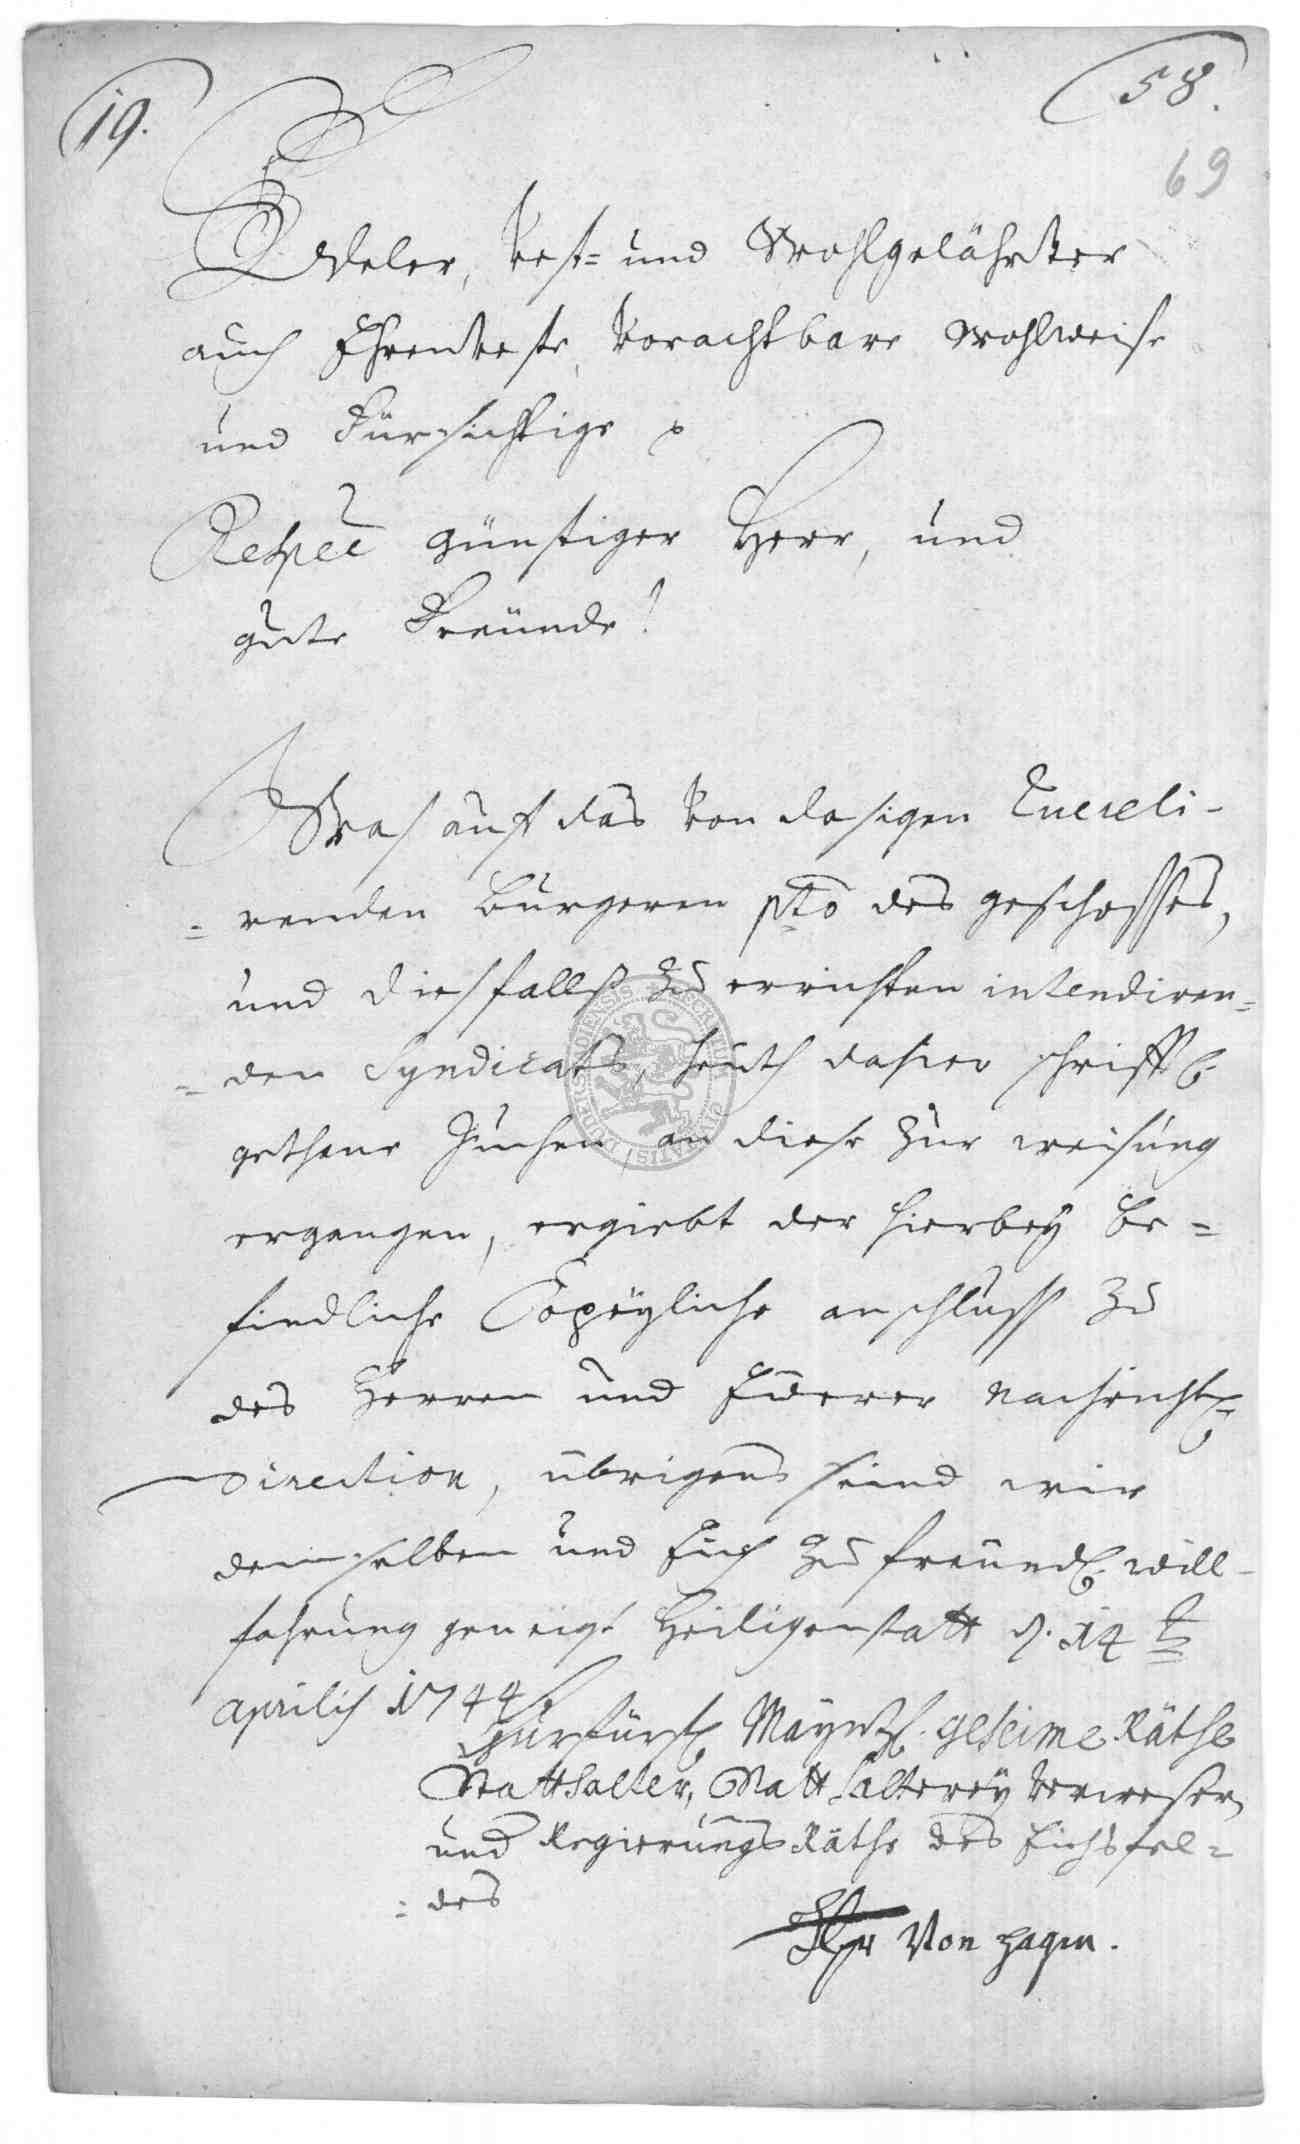 19.
58.
69
Edeler, Vest= und Wohlgelährter
auch Ehrenveste, Vorachtbare Wohlweise
und Fürsichtige p
Respec günstiger Herr, und
gute Freünde!
Was auf das von dasigen Quereli-
=renden Bürgeren pto des geschosses,
und diesfallß zu errichten intendiren=
=den Syndicats, heuth dahier schrifftl.
gethane Suchen, an diese zur weisung
ergangen, ergiebt der hierbeÿ be=
findliche Copeÿliche anschluss zu
des Herren und Euerer nachricht
Direction, übrigens seind wir
demselben und Euch zu freundl. will-
fahrung geneigt Heiligenstatt d. 14 t
aprilis 1744
Churfürstl. Maÿntzl. geheime Räthe
Statthalter, Statthaltereÿ Verweser,
und Regierungs Räthe des Eichsfel=
=des
Von Hagen.
SIGILLUM CIVITATIS DUDERSTADIENSIS